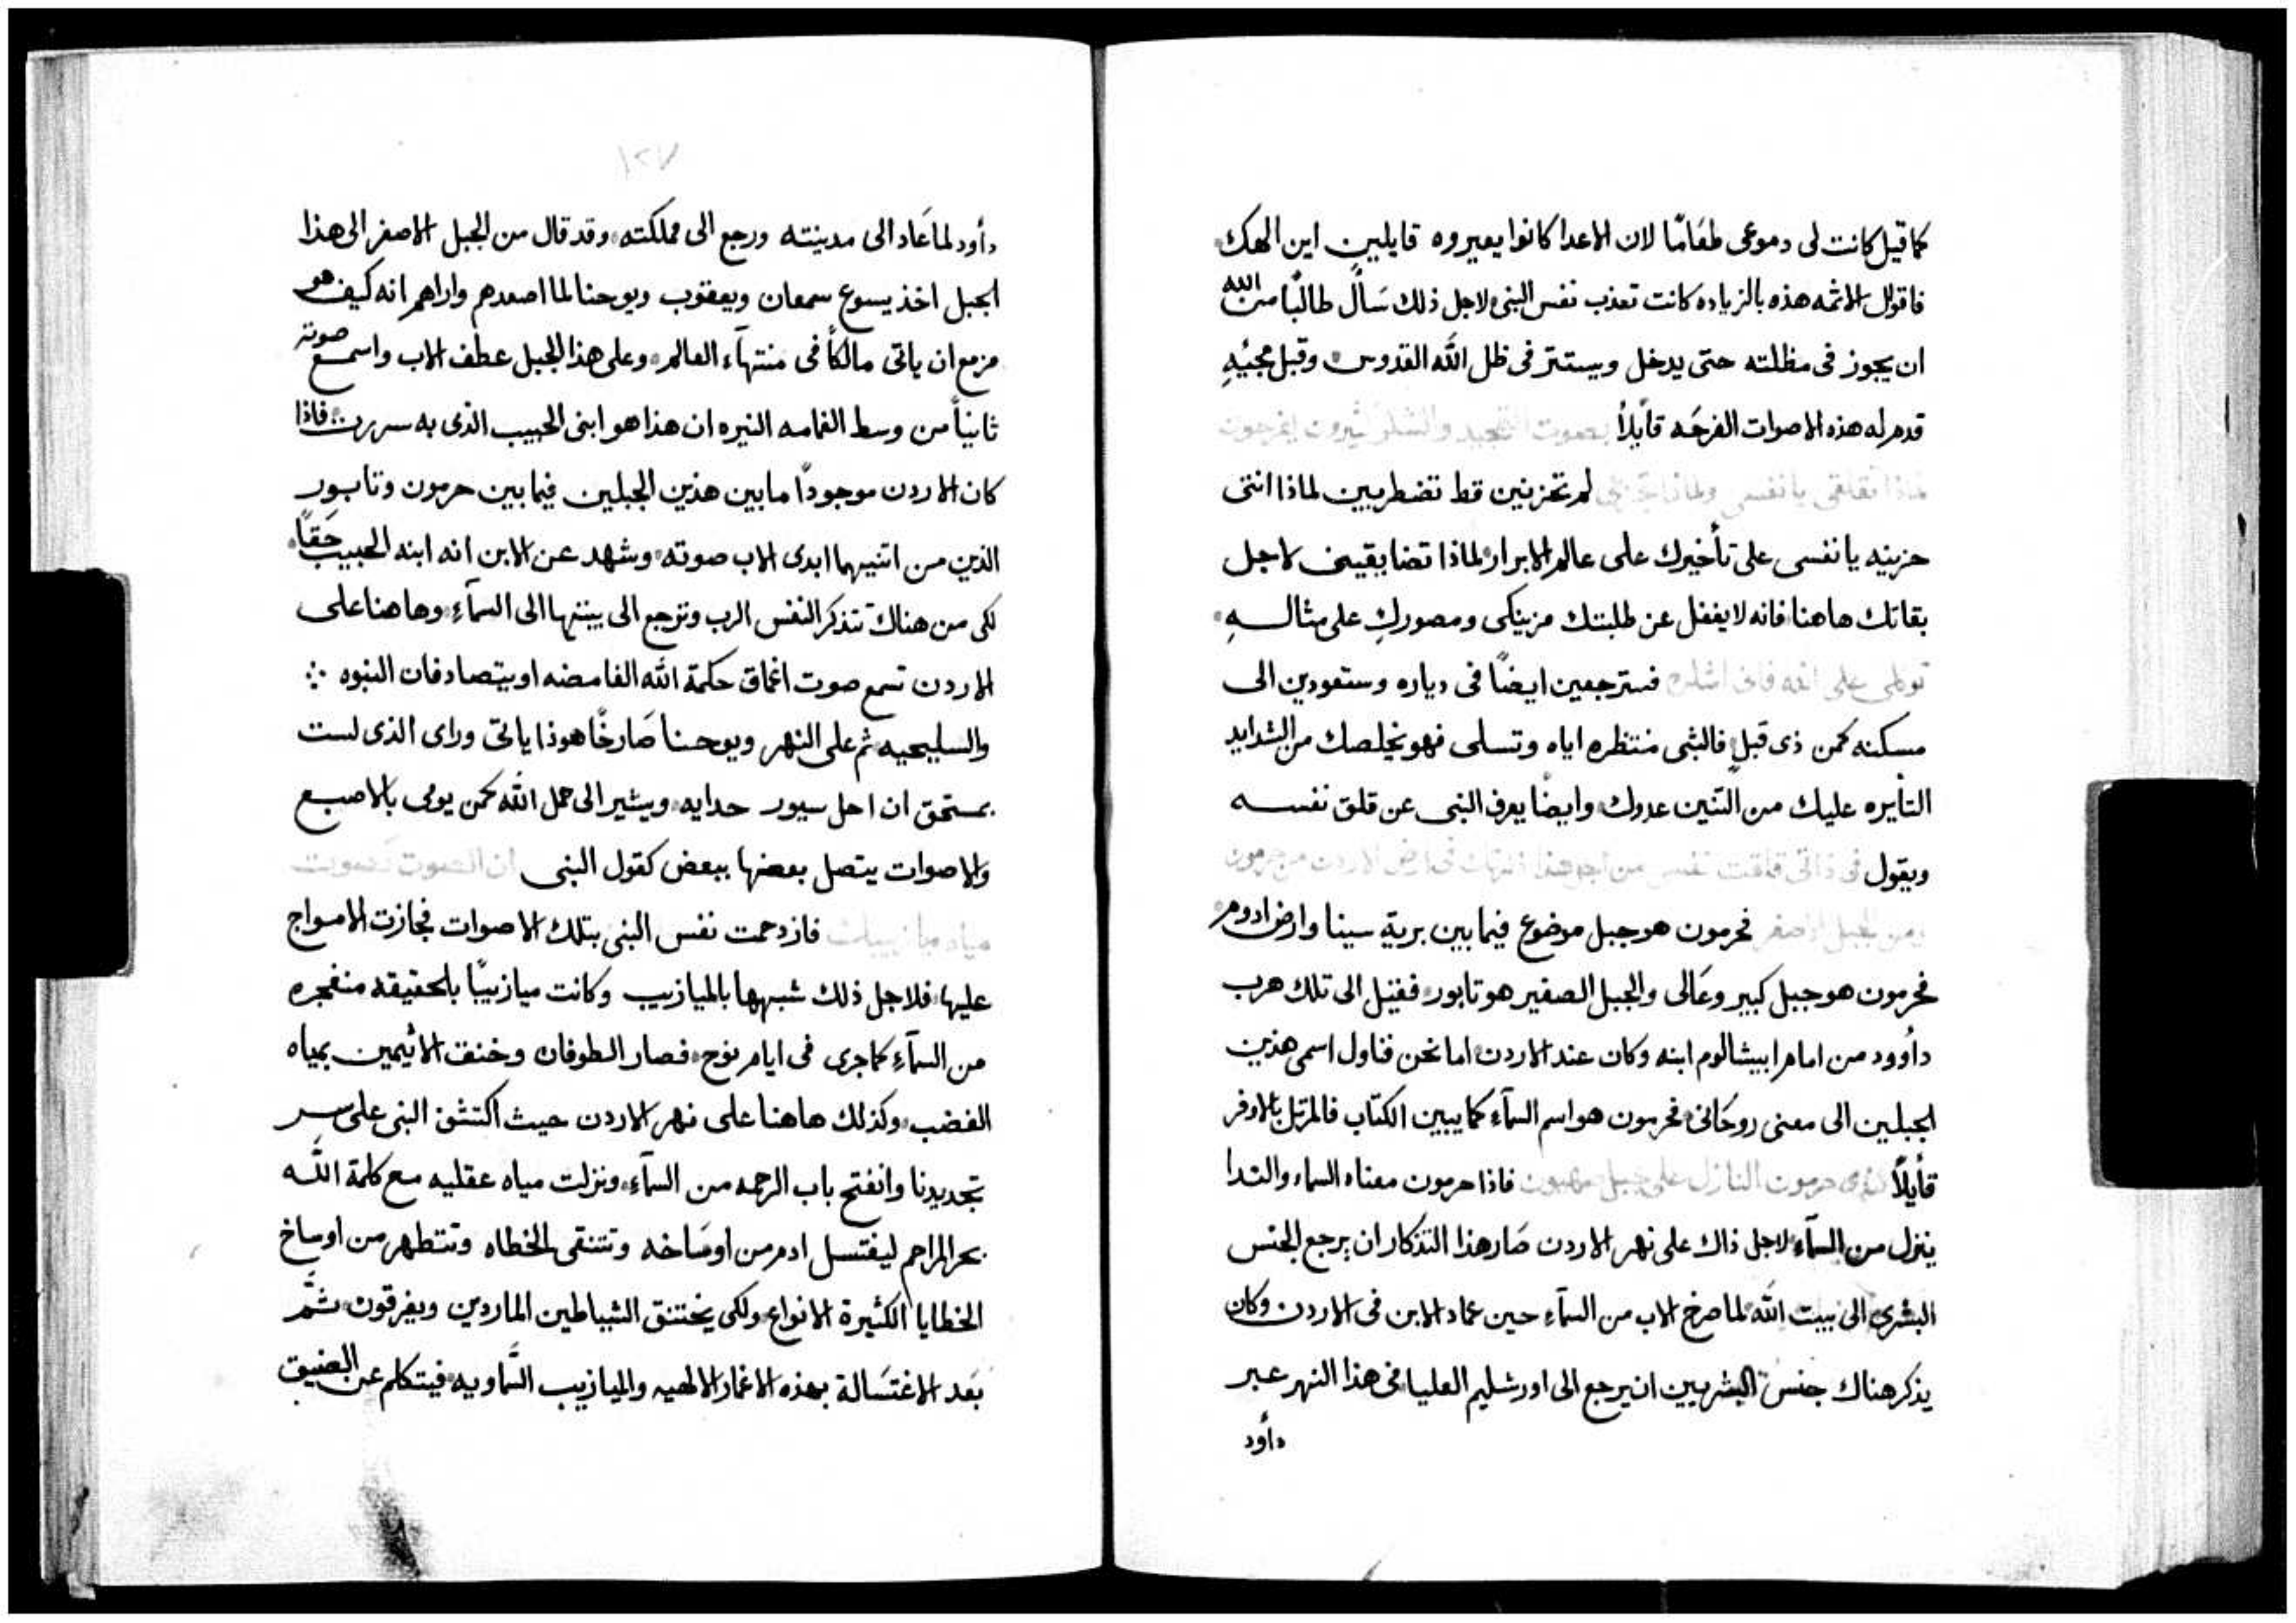 كما قيل كانت لى دموعى طعَامًا لان الاعدا كانوا يعيروه قايلين اين الهك
فاقول الاثمه هذه بالزياده كانت تعذب نفس النبى لاجل ذلك سَأل طالبًا من الله
ان يجوز فى مظلته حتى يدخل ويستتر فى ظل الله القدوس وقبل مجيئهِ
قدم له هذه الاصوات الفرحَه قايلاً بصوت التمجيد والشكر
لماذا تقلقى يا نفسى ولماذا لم تحزنين قط تضطربين لماذا انتى
حزينه يا نفسى على تأخيرك على عالم الابرار لماذا تضايقين لاجل
بقاتك هاهنا فانه لا يغفل عن طلبتك مزينكى ومصوركِ على مثالــهِ
توكلى على الله فانى اشكره فسترجعين ايضًا فى دياره وستعودين الى
مسكنه كمن ذى قبل فالبثى منتظره اياه وتسلى فهو يخلصك من الشدايد
الثايره عليك من التنين عدوك وايضًا يعرف النبى عن قلق نفســه
ويقول فى ذاتى قلقت نفسى من اجل هذا اذكرك فى ارض الاردن من حرمون
من الجبل الاصغر فحرمون هو جبل موضوع فيما بين برية سينا وارض ادوم
فحرمون هو جبل كبير وعَالى والجبل الصغير هو تابور فقيل الى تلك هرب
داوود من امام ابيشالوم ابنه وكان عند الاردن اما نحن فناول اسمى هذين
الجبلين الى معنى روحَانى فحرمون هو اسم السمآء كما يبين الكتاب فالمرتل بالاوفر
قايلاً كندى حرمون النازل على جبل صهيون فاذا حرمون معناه السماء والندا
ينزل من السمآء لاجل ذاك على نهر الاردن صَار هذا التذكار ان يرجع الجنس
البشرى الى بيت الله لما صرخ الاب من السمآء حين عماد الابن فى الاردن وكان
يذكر هناك جنس البشريين ان يرجع الى اورشليم العليا فى هذا النهر عبر
داود
١٢٧
داود لما عَاد الى مدينته ورجع الى مملكته وقد قال من الجبل الاصغر الى هذا
الجبل اخذ يسوع سمعان ويعقوب ويوحنا لما اصعدهم واراهم انه كيف هو
مزمع ان ياتى مالكاً فى منتهآء العالم وعلى هذا الجبل عطف الاب واسمع صوته
ثانياً من وسط الغمامه النيره ان هذا هو ابنى الحبيب الذى به سررت فاذا
كان الاردن موجودًا ما بين هذين الجبلين فيما بين حرمون وتابور
الذين من اتنيهما ابدى الاب صوته وشهد عن الابن انه ابنه الحبيب حَقاً
لكى من هناك تتذكر النفس الرب وترجع الى بيتها الى السمآء وهاهنا على
الاردن تسمع صوت اغماق حكمة الله الغامضه او يتصادفان النبوه
والسليحيه ثم على النهر ويوحنا صَارخًا هوذا ياتى وراى الذى لست
بمستحق ان احل سيور حدايه ويشير الى حمل الله كمن يومى بالاصبع
والاصوات يتصل بعضها ببعض كقول النبى ان الصوت لصوت
فازدحمت نفس النبى بتلك الاصوات فجازت الامواج
عليها فلاجل ذلك شبهها بالميازيب وكانت ميازيبًا بالحقيقه منفجره
من السمآءِ كما جرى فى ايام نوح فصار الطوفان وخنق الاثيمين بمياه
الغضب وكذلك هاهنا على نهر الاردن حيث اكتشف النبى على سر
تجديدنا وانفتح باب الرحمه من السمآءِ ونزلت مياه عقليه مع كلمة الله
بحر المراحم ليغتسل ادم من اوسَاخه وتتنقى الخطاه وتتطهر من اوساخ
الخطايا الكثيرة الانواع ولكى يختنق الشياطين الماردين ويغرقون ثم
بَعد الاغتسَالة بهذه الاغمار الالهيه والميازيب السَّماويه فيتكلم عن الضيق